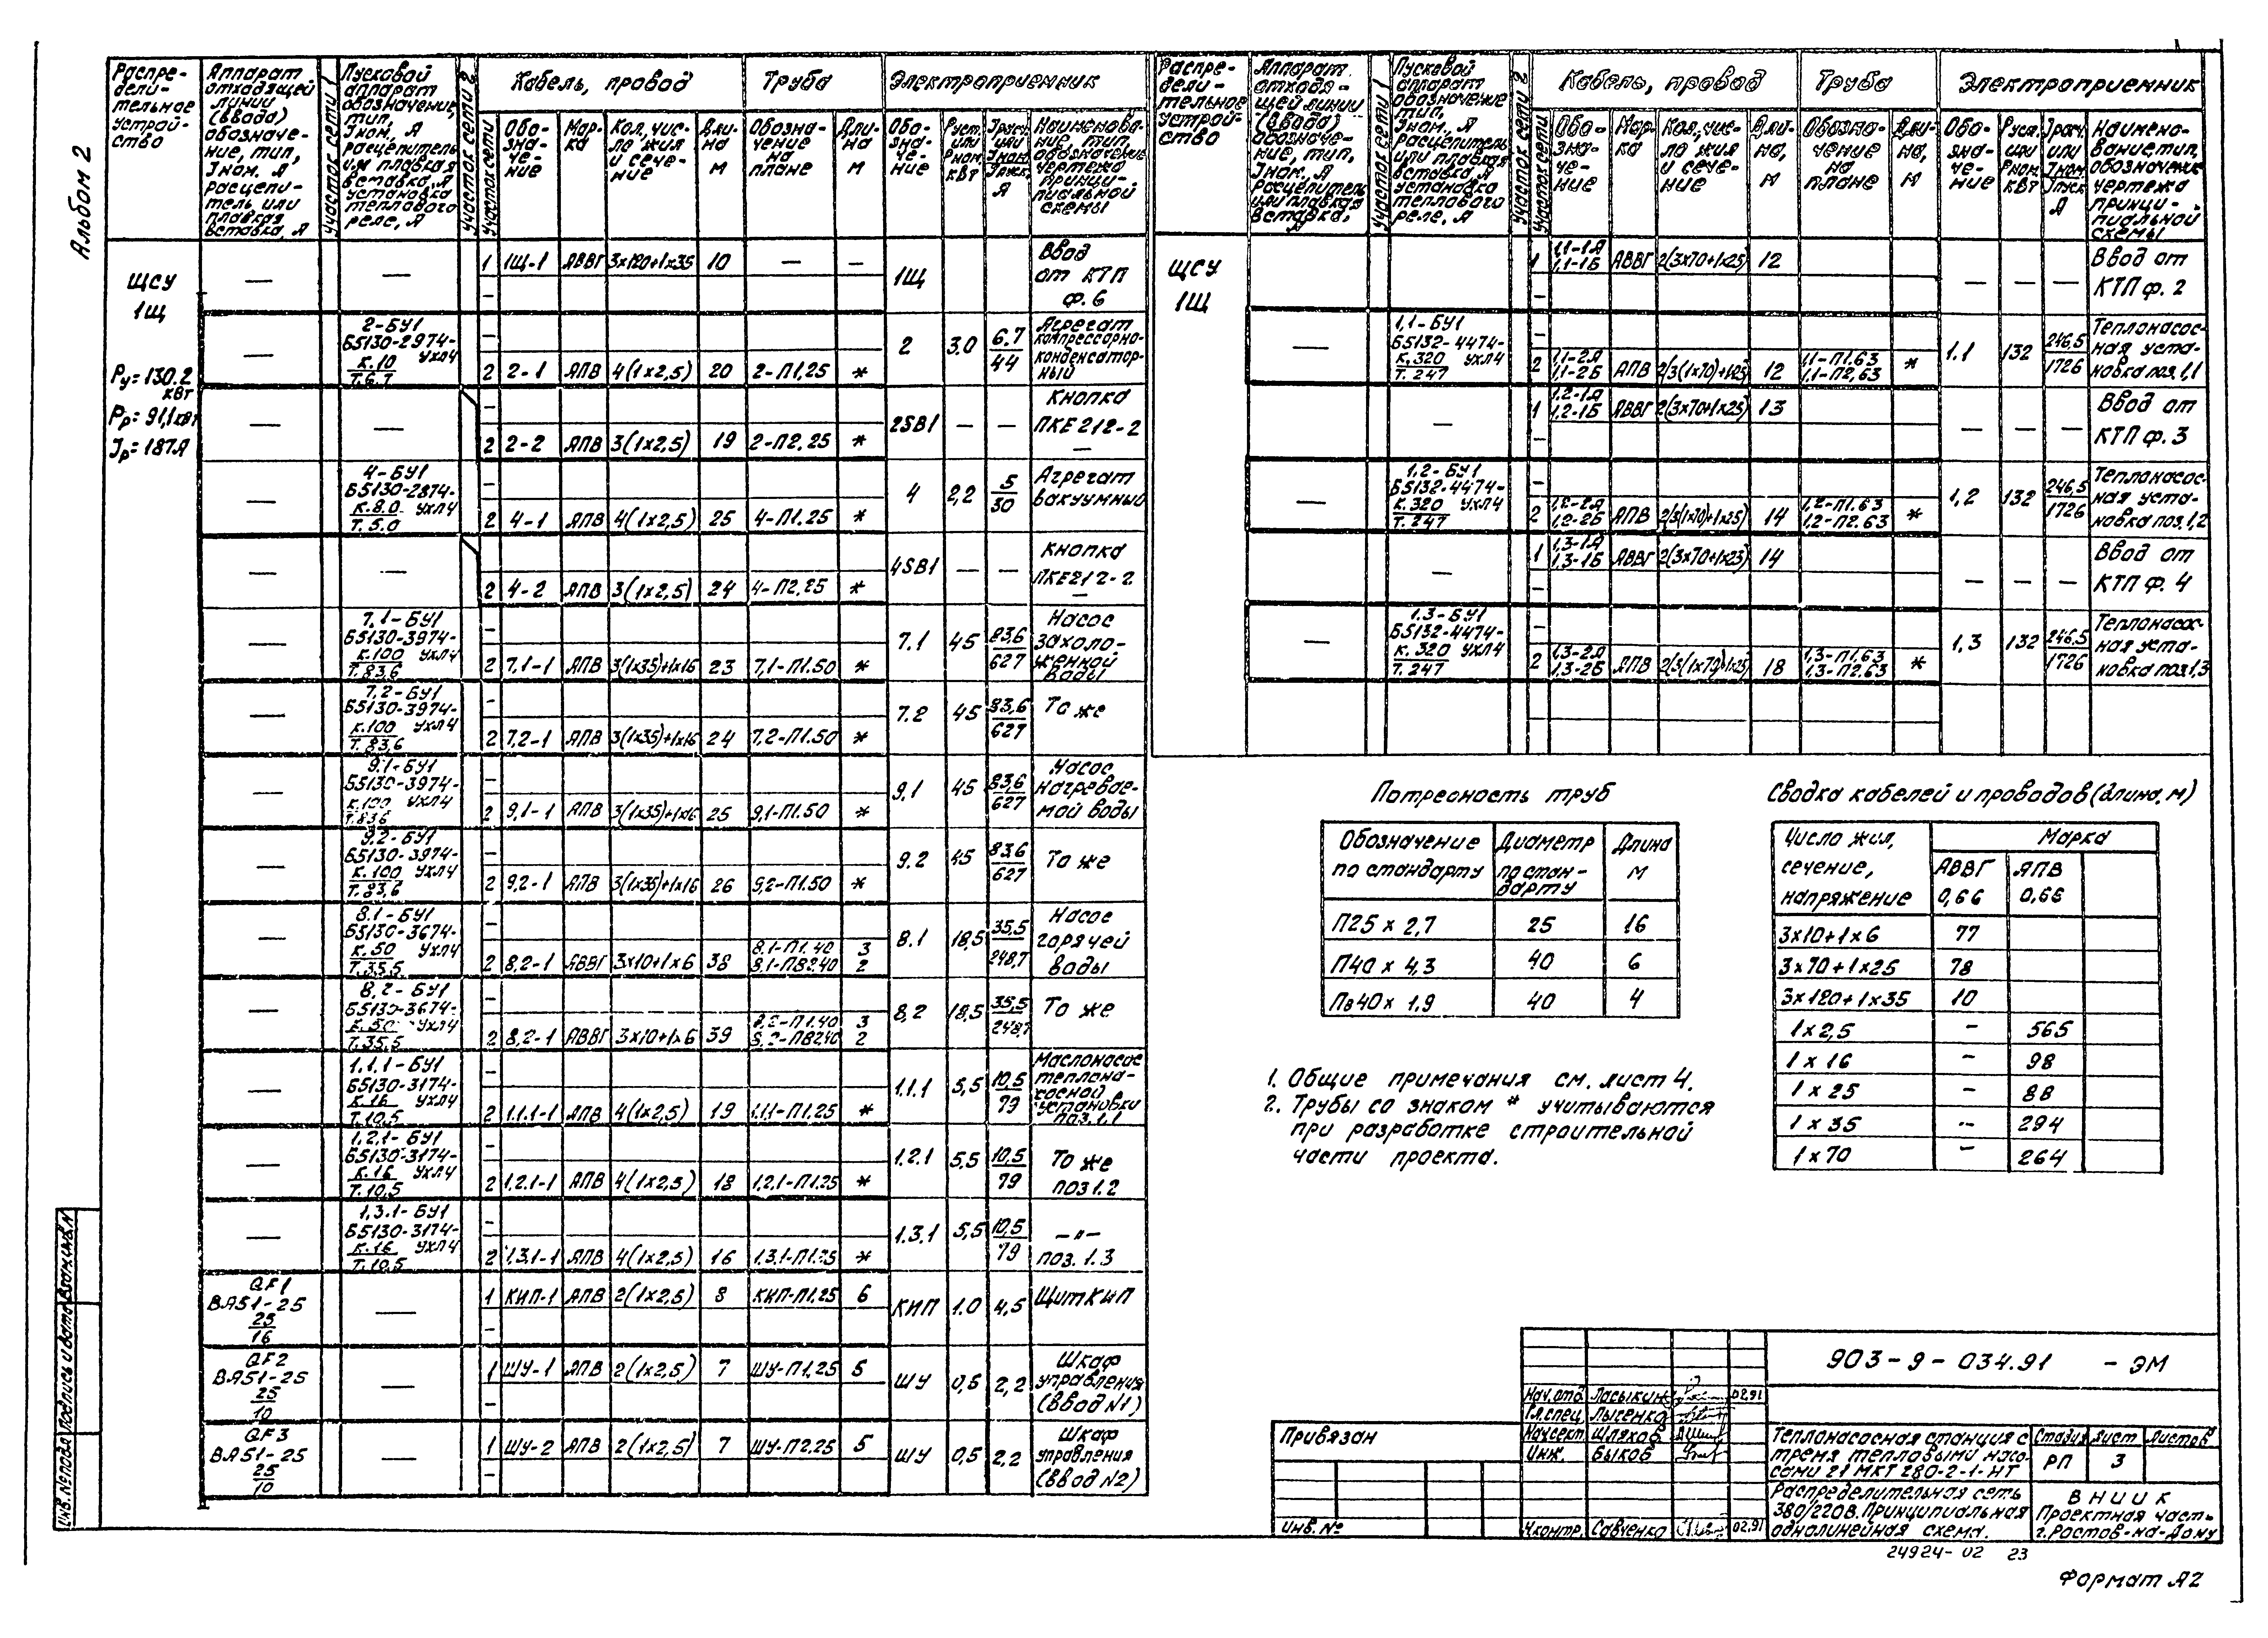 Альбом 2
Распре-
дели-
тельное
устрой-
ство
Аппарат
отходящей
линии
(ввода)
обозначе-
ние, тип,
Iном. А
расцепи-
тель или
плавкая
вставка, А
Участок сети 1
Пусковой
аппарат
обозначение,
тип,
Iном., А
расцепитель
или плавкая
вставка, А
установка
теплового
реле, А
Участок сети 2
Участок сети
Кабель, провод
Обо-
зна-
че-
ние
Мар-
ка
Кол, чис-
ло жил
и сече-
ние
Дли-
на
м
Труба
Обозна-
чение
на
плане
Дли-
на
м
Электроприемник
Обо-
зна-
че-
ние
Руст.
или
Рном,
кВт
Iрасч.
или
Iном.
Iпуск,
А
Наименова-
ние, тип,
обозначение
чертежа
принци-
пиальной
схемы
ЩСУ
1Щ
Ру=130.2
кВт
Рр=91,1кВт
Iр=187А
— — 1 1Щ-1 АВВГ 3х120+1х35 10 — — 1Щ Ввод
от КТП
ф. 6
— 2-БУ1
Б5130-2974-
К.10 УХЛ4
Т.6.7
2 2-1 АПВ 4(1х2,5) 20 2-П1,25 * 2 3.0 6.7
44 Агрегат
компрессорно-
конденсатор-
ный
— — 2 2-2 АПВ 3(1х2,5) 19 2-П2,25 * 2SB1 — — Кнопка
ПКЕ212-2
— 4-БУ1
Б5130-2874-
К.8.0 УХЛ4
Т.5.0
2 4-1 АПВ 4(1х2,5) 25 4-П1.25 * 4 2,2 5
30 Агрегат
вакуумный
— — 2 4-2 АПВ 3(1х2,5) 24 4-П2,25 * 4SB1 — — Кнопка
ПКЕ212-2
— 7,1-БУ1
Б5130-3974-
К.100 УХЛ4
Т.83,6
2 7,1-1 АПВ 3(1х35)+1х16 23 7,1-П1.50 * 7.1 45 83,6
627 Насос
захоло-
женной
воды
— 7,2-БУ1
Б5130-3974-
К.100 УХЛ4
Т.83,6
2 7,2-1 АПВ 3(1х35)+1х16 24 7,2-П1.50 * 7.2 45 83,6
627 То же
— 9.1-БУ1
Б5130-3974-
К.100 УХЛ4
Т.83.6
2 9,1-1 АПВ 3(1х35)+1х16 25 9,1-П1.50 * 9,1 45 83,6
627 Насос
нагревае-
мой воды
— 9.2-БУ1
Б5130-3974-
К.100 УХЛ4
Т.83,6
2 9,2-1 АПВ 3(1х35)+1х16 26 9,2-П1.50 * 9.2 45 83.6
627 То же
— 8.1-БУ1
Б5130-3674-
К.50 УХЛ4
Т.35,5
2 8,2-1 АВВГ 3х10+1х6 38 8.1-П1.40 3
8.1-ПВ2.40 2
8.1 18,5 35,5
248,7 Насос
горячей
воды
— 8,2-БУ1
Б5130-3674-
К.50 УХЛ4
Т.35.5
2 8,2-1 АВВГ 3х10+1х6 39 8,2-П1.40 3
8,2-ПВ240 2
8,2 18,5 35,5
248,7 То же
— 1.1.1-БУ1
Б5130-3174-
К.16 УХЛ4
Т.10,5
2 1.1.1-1 АПВ 4(1х2,5) 19 1.1.1-П1.25 * 1.1.1 5,5 10,5
79 Маслонасос
теплона-
сосной
установки
поз.1.1
— 1,2,1-БУ1
Б5130-3174-
К.16 УХЛ4
Т.10,5
2 1.2.1-1 АПВ 4(1х2,5) 18 1,2,1-П1.25 * 1.2.1 5,5 10,5
79 То же
поз 1.2
— 1,3.1-БУ1
Б5130-3174-
К.16 УХЛ4
Т.10,5
2 1.3.1-1 АПВ 4(1х2,5) 16 1.3.1-П1.25 * 1.3.1 5,5 10,5
79 —"—
поз. 1.3
QF1
ВА51-25
25
16
— 1 КИП-1 АПВ 2(1х2,5) 8 КИП-П1.25 6 КИП 1.0 4,5 Щит КИП
QF2
ВА51-25
25
10
— 1 ШУ-1 АПВ 2(1х2,5) 7 ШУ-П1,25 5 ШУ 0,5 2,2 Шкаф
управления
(ввод N1)
QF3
ВА51-25
25
10
— 1 ШУ-2 АПВ 2(1х2,5) 7 ШУ-П2.25 5 ШУ 0,5 2,2 Шкаф
управления
(ввод N2)
Распре-
дели-
тельное
устрой-
ство
Аппарат
отходя-
щей линии
(ввода)
обозначе-
ние, тип,
Iном. А
расцепитель
или плавкая
вставка,
А
Участок сети 1
Пусковой
аппарат
обозначение
тип,
Iном., А
расцепитель
или плавкая
вставка, А
установка
теплового
реле, А
Участок сети 2
Участок сети
Кабель, провод
Обо-
зна-
че-
ние
Мар-
ка
Кол, чис-
ло жил
и сече-
ние
Дли-
на,
м
Труба
Обозна-
чение
на
плане
Дли-
на,
м
Электроприемник
Обо-
зна-
че-
ние
Руст.
или
Рном.
кВт
Iрасч.
или
Iном
Iпуск
А
Наимено-
вание, тип,
обозначение
чертежа
принци-
пиальной
схемы
ЩСУ
1Щ
1 1.1-1А
1.1-1Б АВВГ 2(3х70+1х25) 12 — — — Ввод от
КТП ф. 2
— 1,1-БУ1
Б5132-4474-
К.320 УХЛ4
Т. 247
2 1,1-2А
1,1-2Б АПВ 2(3(1х70)+1х25) 12 1.1-П1.63
1,1-П2,63 * 1.1 132 246,5
1726 Теплонасос-
ная уста-
новка поз.1,1
— 1 1,2-1А
1,2-1Б АВВГ 2(3х70+1х25) 13 — — — Ввод от
КТП ф. 3
— 1,2-БУ1
Б5132-4474-
К.320 УХЛ4
Т. 247
2 1,2-2А
1,2-2Б АПВ 2(3(1х70)+1х25) 14 1,2-П1.63
1,2-П2.63 * 1,2 132 246,5
1726 Теплонасос-
ная уста-
новка поз.1,2
— 1 1,3-1А
1,3-1Б АВВГ 2(3х70+1х25) 14 — — — Ввод от
КТП ф. 4
— 1,3-БУ1
Б5132-4474-
К. 320 УХЛ4
Т. 247
2 1,3-2А
1,3-2Б АПВ 2(3(1х70)+1х25) 18 1,3-П1.63
1,3-П2.63 * 1,3 132 246,5
1726 Теплонасос-
ная уста-
новка поз.1,3
Потребность труб
Обозначение
по стандарту
Диаметр
по стан-
дарту
Длина
м
П25 х 2,7 25 16
П40 х 4,3 40 6
Пв40х 1,9 40 4
Сводка кабелей и проводов (длина, м)
Число жил,
сечение,
напряжение
Марка
АВВГ
0,66
АПВ
0,66
3х10+1х6 77
3х70+1х25 78
3х120+1х35 10
1х2,5 — 565
1 х 16 — 98
1 х 25 — 88
1 х 35 — 294
1 х 70 — 264
1. Общие примечания см. лист 4.
2. Трубы со знаком * учитываются
при разработке строительной
части проекта.
903-9-034.91 -ЭМ
Нач.отд. Ласыкин 02.91
Гл.спец. Лысенко
Нач.сект. Шляхов
Инж. Быков
Н.контр. Савченко 02.91
Привязан
Инв.№
Теплонасосная станция с
тремя тепловыми насо-
сами 21 МКТ 280-2-1-НТ
Стадия Лист Листов
РП 3
Распределительная сеть
380/220В. Принципиальная
однолинейная схема.
ВНИИК
Проектная часть
г.Ростов-на-Дону
24924-02 23
Формат А2
Инв.№подл. Подпись и дата Взам.инв.N